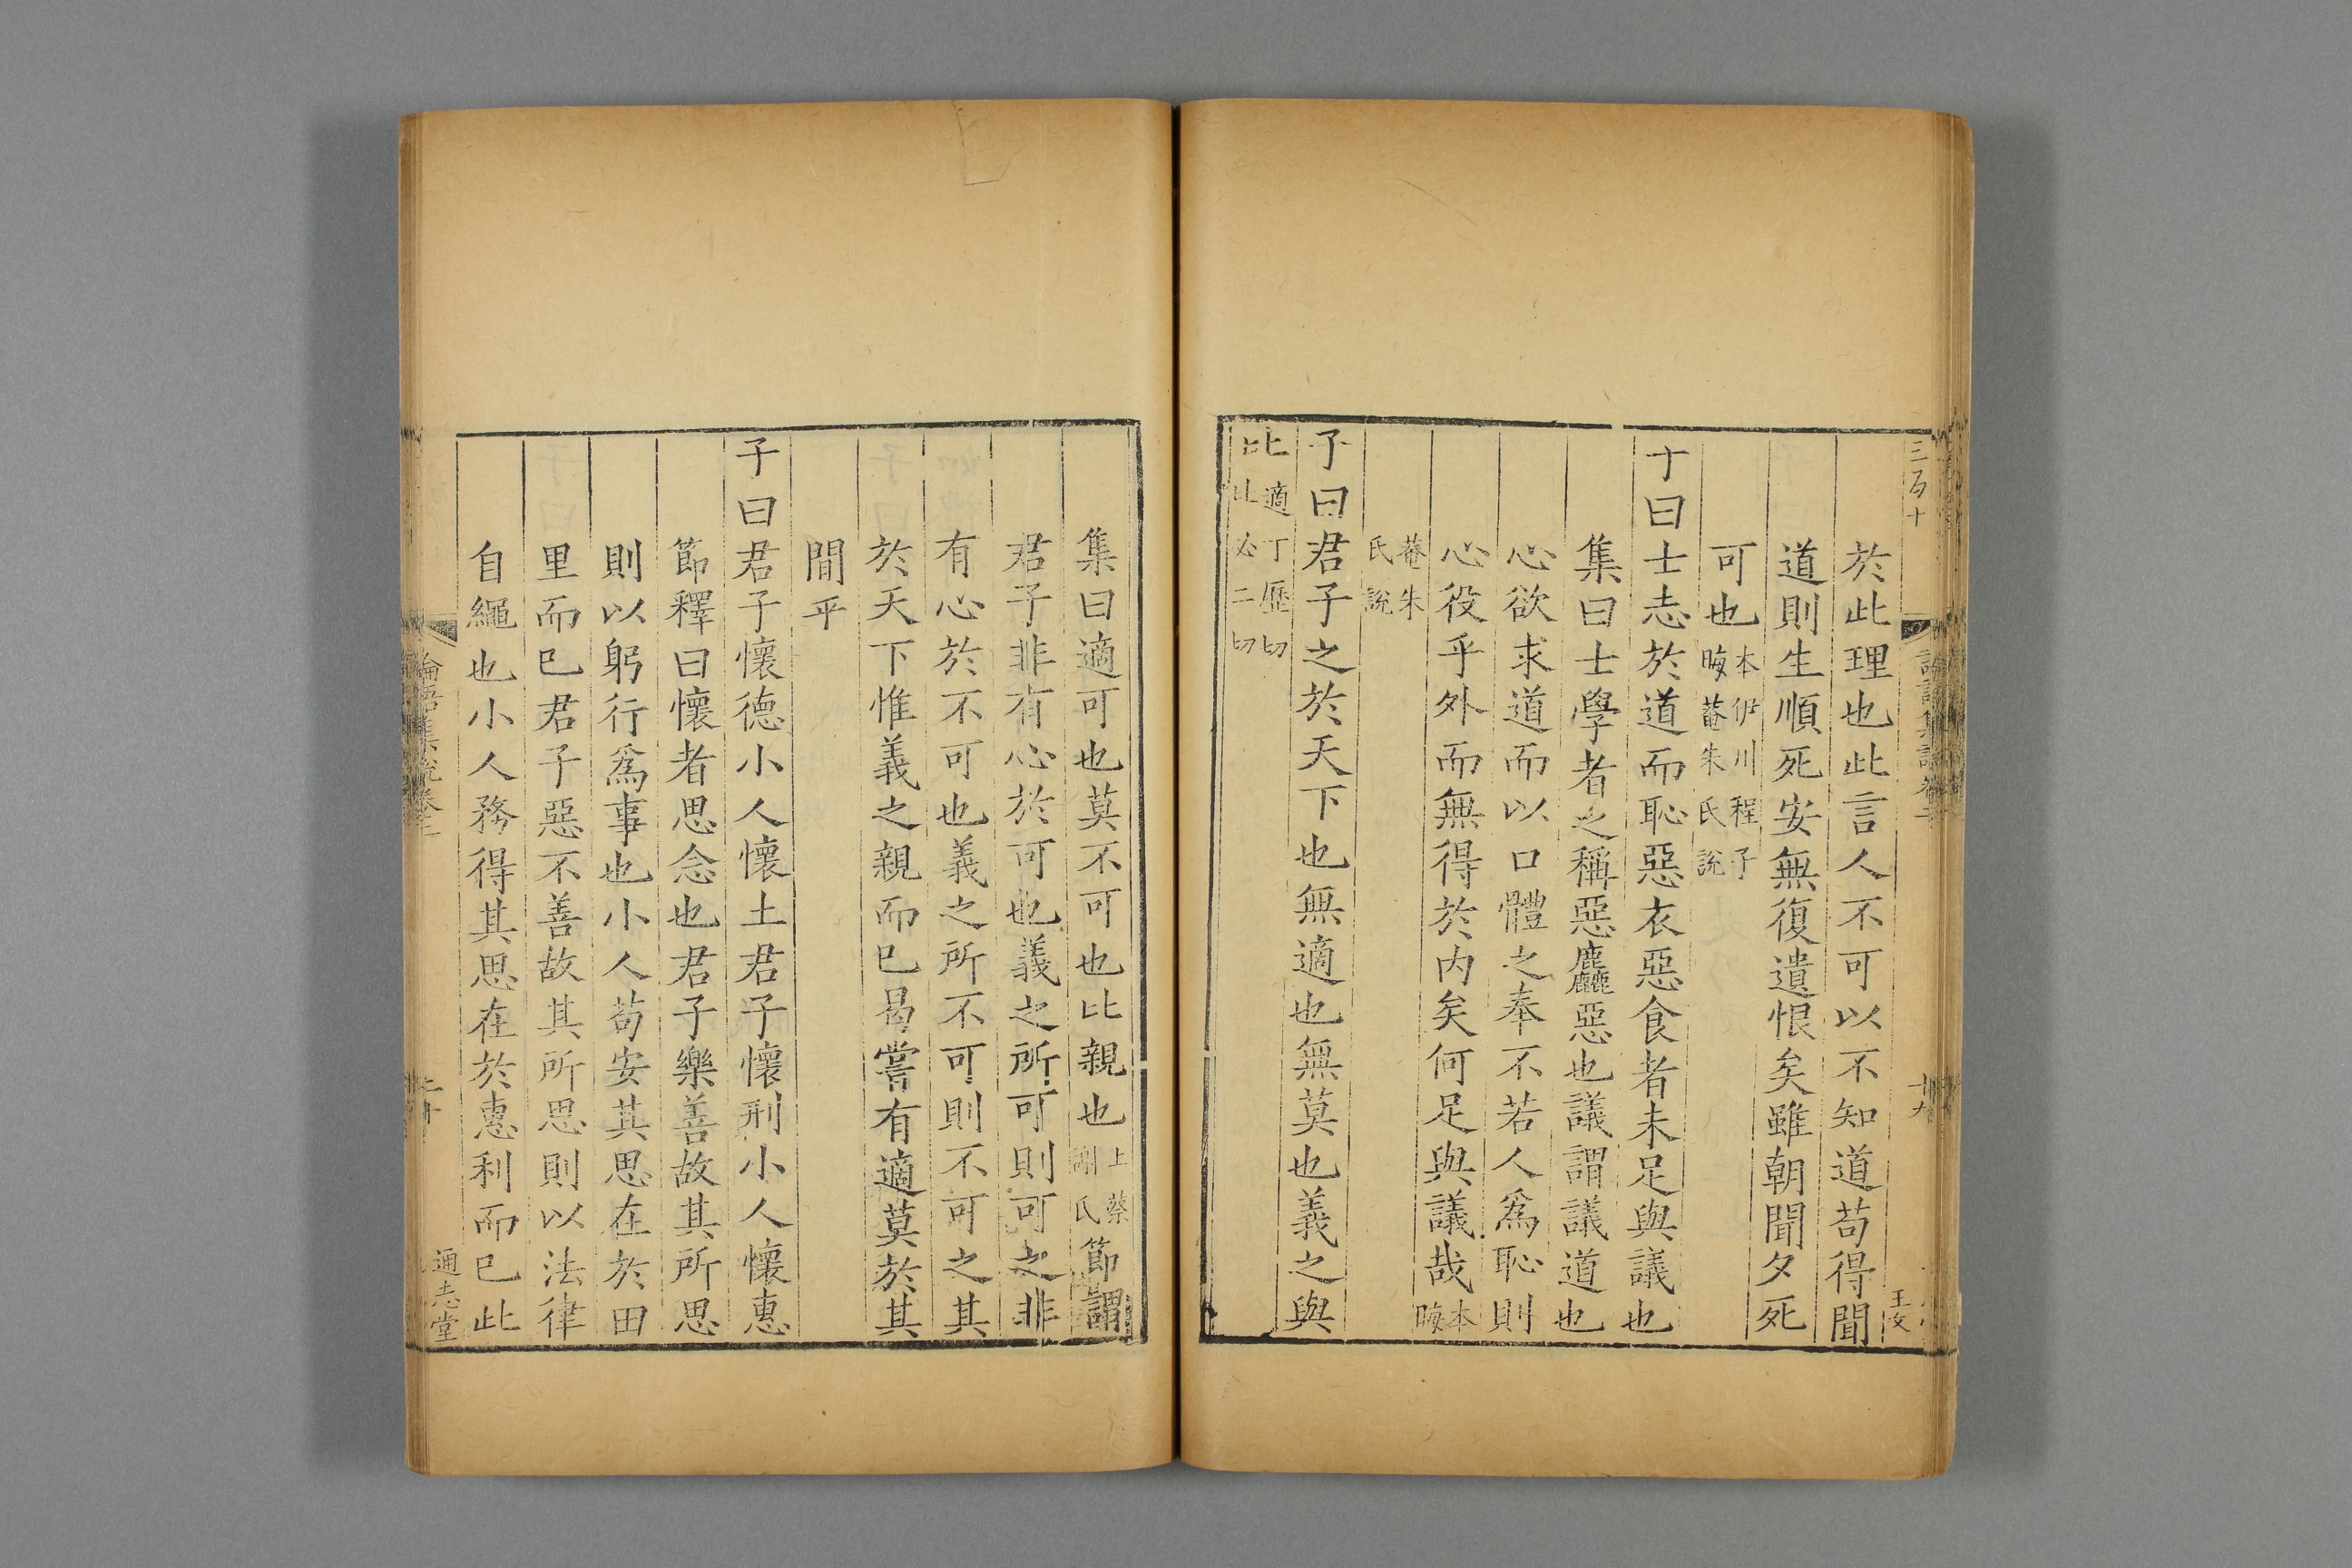 三百十
於此理也此言人不可以不知道苟得聞
道則生順死安無復遺恨矣雖朝聞夕死
可也本伊川程子晦菴朱氏說
子曰士志於道而恥惡衣惡食者未足與議也
集曰士學者之稱惡麤惡也議謂議道也
心欲求道而以口體之奉不若人爲恥則
心役乎外而無得於内矣何足與議哉本晦
菴朱氏說
子曰君子之於天下也無適也無莫也義之與
比適丁歷切比必二切
集曰適可也莫不可也比親也上蔡謝氏節謂
君子非有心於可也義之所可則可之非
有心於不可也義之所不可則不可之其
於天下惟義之親而已曷嘗有適莫於其
間乎
子曰君子懷德小人懷土君子懷刑小人懷惠
節釋曰懷者思念也君子樂善故其所思
則以躬行爲事也小人苟安其思在於田
里而已君子惡不善故其所思則以法律
自繩也小人務得其思在於惠利而已此
論語集說卷二
通志堂